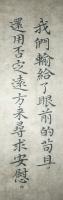 我們輸給了眼前的苟且，
還用否之遠方來尋求安慰。